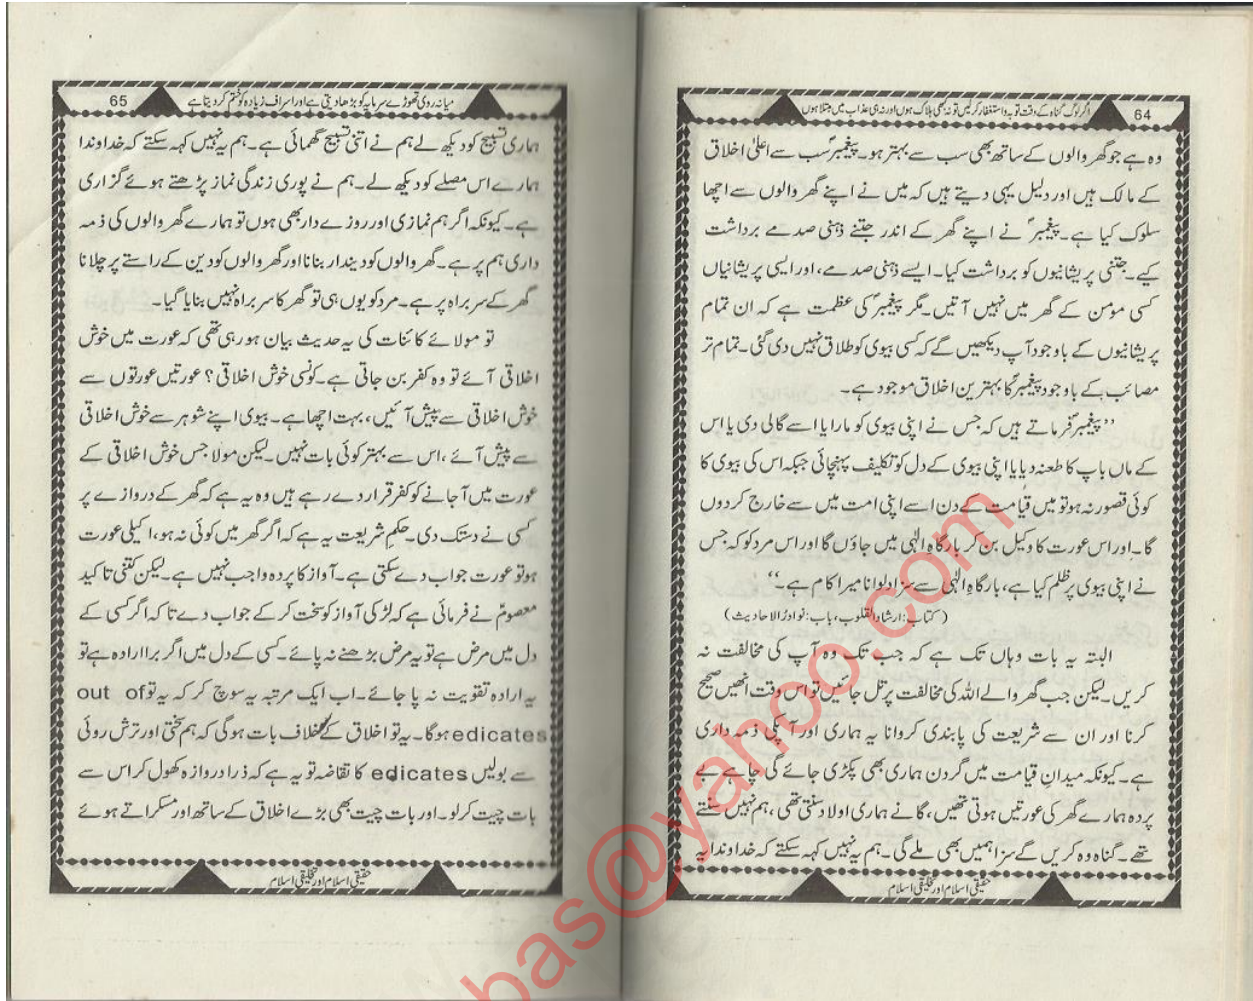 64
اگر لوگ گناہ کے وقت توبہ و استغفار کر لیں تو نہ کبھی ہلاک ہوں اور نہ ہی عذاب میں مبتلا ہوں
وہ ہے جو گھر والوں کے ساتھ بھی سب سے بہتر ہو۔ پیغمبرؐ سب سے اعلیٰ اخلاق
کے مالک ہیں اور دلیل یہی دیتے ہیں کہ میں نے اپنے گھر والوں سے اچھا
سلوک کیا ہے۔ پیغمبرؐ نے اپنے گھر کے اندر جتنے ذہنی صدمے برداشت
کیے۔ جتنی پریشانیوں کو برداشت کیا۔ ایسے ذہنی صدمے، اور ایسی پریشانیاں
کسی مومن کے گھر میں نہیں آتیں۔ مگر پیغمبرؐ کی عظمت ہے کہ ان تمام
پریشانیوں کے باوجود آپ دیکھیں گے کہ کسی بیوی کو طلاق نہیں دی گئی۔ تمام تر
مصائب کے باوجود پیغمبرؐ کا بہترین اخلاق موجود ہے۔
’’پیغمبرؐ فرماتے ہیں کہ جس نے اپنی بیوی کو مارا یا اسے گالی دی یا اس
کے ماں باپ کا طعنہ دیا یا اپنی بیوی کے دل کو تکلیف پہنچائی جبکہ اس کی بیوی کا
کوئی قصور نہ ہو تو میں قیامت کے دن اسے اپنی امت میں سے خارج کردوں
گا۔ اور اس عورت کا وکیل بن کر بارگاہِ الٰہی میں جاؤں گا اور اس مرد کو کہ جس
نے اپنی بیوی پر ظلم کیا ہے، بارگاہِ الٰہی سے سزا دلوانا میرا کام ہے۔‘‘
(کتاب: ارشاد القلوب، باب: نوادرُ الاحادیث)
البتہ یہ بات وہاں تک ہے کہ جب تک وہ آپ کی مخالفت نہ
کریں۔ لیکن جب گھر والے اللہ کی مخالفت پر تل جائیں تو اس وقت انھیں صحیح
کرنا اور ان سے شریعت کی پابندی کروانا یہ ہماری اور آپکی ذمہ داری
ہے۔ کیونکہ میدانِ قیامت میں گردن ہماری بھی پکڑی جائے گی چاہے بے
پردہ ہمارے گھر کی عورتیں ہوتی تھیں، گانے ہماری اولاد سنتی تھی، ہم نہیں سنتے
تھے۔ گناہ وہ کریں گے سزا ہمیں بھی ملے گی۔ ہم یہ نہیں کہہ سکتے کہ خداوندا یہ
حقیقی اسلام اور تخلیقی اسلام
65
میانہ روی تھوڑے سرمایہ کو بڑھا دیتی ہے اور اسراف زیادہ کو ختم کر دیتا ہے
ہماری تسبیح کو دیکھ لے ہم نے اتنی تسبیح گھمائی ہے۔ ہم یہ نہیں کہہ سکتے کہ خداوندا
ہمارے اس مصلے کو دیکھ لے۔ ہم نے پوری زندگی نماز پڑھتے ہوئے گزاری
ہے۔ کیونکہ اگر ہم نمازی اور روزے دار بھی ہوں تو ہمارے گھر والوں کی ذمہ
داری ہم پر ہے۔ گھر والوں کو دیندار بنانا اور گھر والوں کو دین کے راستے پر چلانا
گھر کے سربراہ پر ہے۔ مرد کو یوں ہی تو گھر کا سربراہ نہیں بنایا گیا۔
تو مولائے کائنات کی یہ حدیث بیان ہو رہی تھی کہ عورت میں خوش
اخلاقی آئے تو وہ کفر بن جاتی ہے۔ کونسی خوش اخلاقی؟ عورتیں عورتوں سے
خوش اخلاقی سے پیش آئیں، بہت اچھا ہے۔ بیوی اپنے شوہر سے خوش اخلاقی
سے پیش آئے، اس سے بہتر کوئی بات نہیں۔ لیکن مولا جس خوش اخلاقی کے
عورت میں آجانے کو کفر قرار دے رہے ہیں وہ یہ ہے کہ گھر کے دروازے پر
کسی نے دستک دی۔ حکمِ شریعت یہ ہے کہ اگر گھر میں کوئی نہ ہو، اکیلی عورت
ہو تو عورت جواب دے سکتی ہے۔ آواز کا پردہ واجب نہیں ہے۔ لیکن کتنی تاکید
معصومؑ نے فرمائی ہے کہ لڑکی آواز کو سخت کر کے جواب دے تا کہ اگر کسی کے
دل میں مرض ہے تو یہ مرض بڑھنے نہ پائے۔ کسی کے دل میں اگر برا ارادہ ہے تو
یہ ارادہ تقویت نہ پا جائے۔ اب ایک مرتبہ یہ سوچ کر کہ یہ تو out of
edicates ہوگا۔ یہ تو اخلاق کے خلاف بات ہوگی کہ ہم سختی اور ترش روئی
سے بولیں edicates کا تقاضہ تو یہ ہے کہ ذرا دروازہ کھول کر اس سے
بات چیت کرلو۔ اور بات چیت بھی بڑے اخلاق کے ساتھ اور مسکراتے ہوئے
حقیقی اسلام اور تخلیقی اسلام
bas@yahoo.com